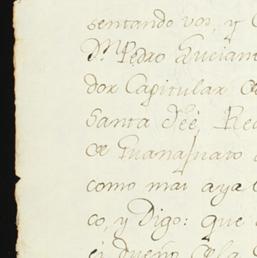 sentando vos, y
D.ⁿ Pedro Luciano
dor Capitular de
Santa Feè, Rea
de Guanajuato
como mas aya
co, y Digo: que
el dueño de la